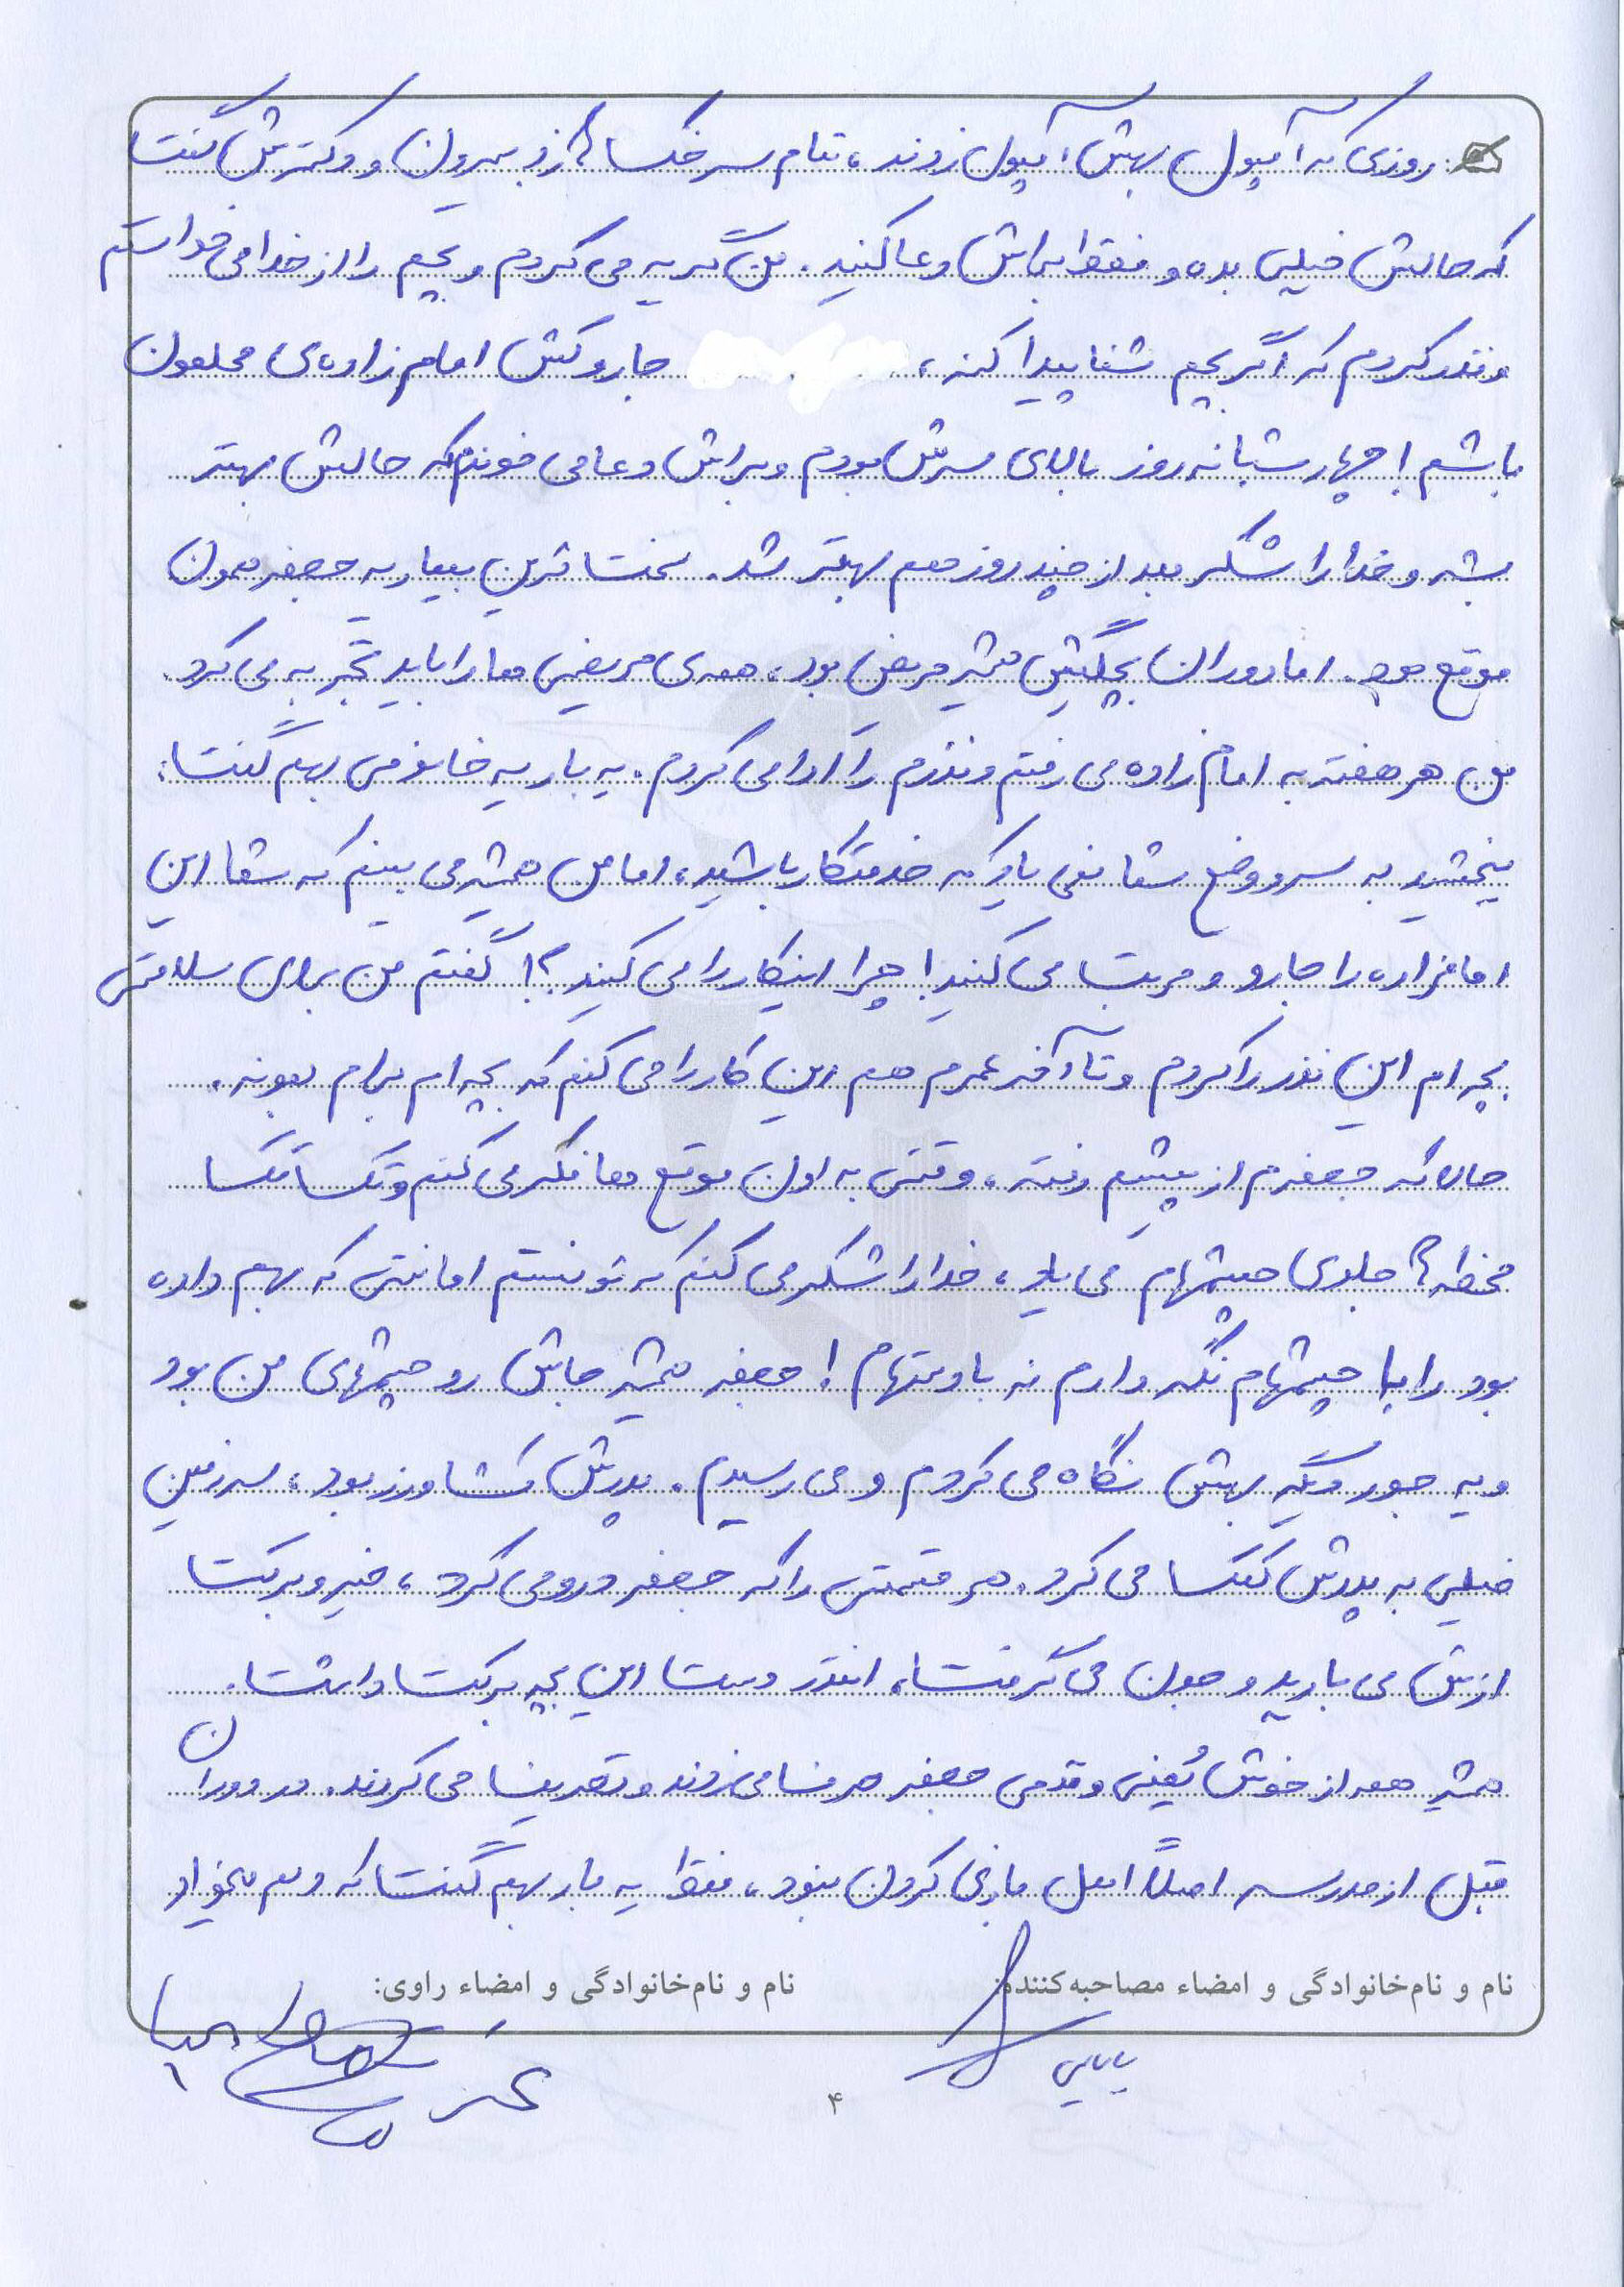 روزی که آمپول بهش آمپول زدند، تمام سرخک‌ها زد بیرون و دکترش گفت
که حالش خیلی بده و فقط براش دعا کنید. من گریه می کردم و بچم را از خدا می خواستم
و نذر کردم که اگر بچم شفا پیدا کنه، جاروکش امام زاده‌ی محلمون
باشم! چهار شبانه روز بالای سرش بودم و براش دعا می خوندم که حالش بهتر
بشه و خدا را شکر بعد از چند روز هم بهتر شد. سخت ترین بیماریه جعفر همون
موقع بود. اما دوران بچگیش همیشه مریض بود، همه‌ی مریضی ها را باید تجربه می کرد.
من هر هفته به امام زاده می رفتم و نذرم را ادا می کردم. یه بار یه خانومی بهم گفت:
ببخشید به سر و وضع شما نمی یاد که خدمتکار باشید، اما من همیشه می بینم که شما این
امامزاده را جارو و مرتب می کنید! چرا اینکار را می کنید؟! گفتم من برای سلامتی
بچه ام این نذر را کردم و تا آخر عمرم هم این کار را می کنم که بچه ام برام بمونه.
حالا که جعفرم از پیشم رفته، وقتی به اون موقع ها فکر می کنم و تک تک
خاطره‌ها جلوی چشمهام می یاد، خدا را شکر می کنم که تونستم امانتی که بهم داده
بود را با چشمهام نگه دارم نه با دستهام! جعفر همیشه جاش رو چشمهای من بود
و یه جور دیگه بهش نگاه می کردم و می رسیدم. پدرش کشاورز بود، سر زمین
خیلی به پدرش کمک می کرد. هر قسمتی را که جعفر درو می کرد، خیر و برکت
ازش می بارید و جون می گرفت، انقدر دست این بچه برکت داشت.
همیشه همه از خوش یُمنی و قدمی جعفر حرف می زدند و تعریف می کردند. در دوران
قبل از مدرسه اصلاً اهل بازی کردن نبود، فقط یه بار بهم گفت که دلم میخواد
نام و نام‌خانوادگی و امضاء مصاحبه‌کننده: نام و نام‌خانوادگی و امضاء راوی:
بابایی
۴